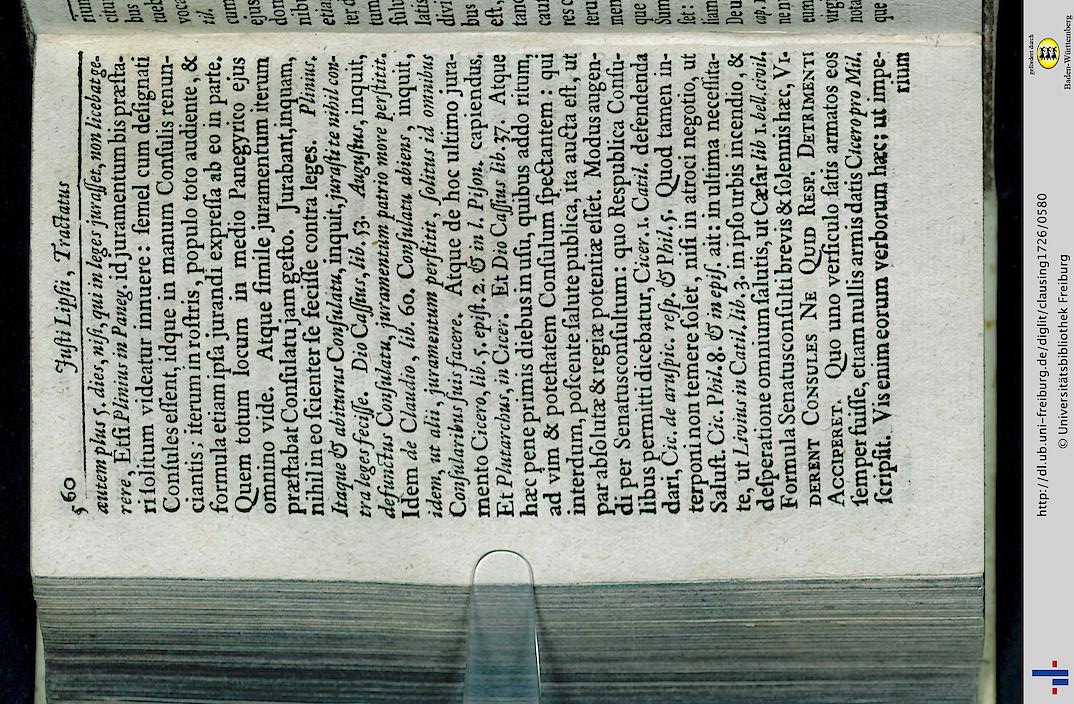 560 Juſti Lipſii, Tractatus
autem plus 5. dies, niſi, qui in leges juraſſet, non licebat ge-
rere, Etſi Plinius in Paneg. id juramentum bis præſta-
ri ſolitum videatur innuere: ſemel cum deſignati
Conſules eſſent, idque in manum Conſulis renun-
ciantis; iterum in roſtris, populo toto audiente, &
formula etiam ipſa jurandi expreſſa ab eo in parte.
Quem totum locum in medio Panegyrico ejus
omnino vide. Atque ſimile juramentum iterum
præſtabat Conſulatu jam geſto. Jurabant, inquam,
nihil in eo ſcienter ſe feciſſe contra leges. Plinius.
Itaque & abiturus Conſulatu, inquit, juraſti te nihil con-
tra leges feciſſe. Dio Caſſius, lib. 53. Auguſtus, inquit,
defunctus Conſulatu, juramentum patrio more perſtitit.
Idem de Claudio, lib. 60. Conſulatu abiens, inquit,
idem, ut alii, juramentum perſtitit, ſolitus id omnibus
Conſularibus ſuis facere. Atque de hoc ultimo jura-
mento Cicero, lib. 5. epiſt. 2. & in l. Piſon. capiendus,
Et Plutarchus, in Cicer. Et Dio Caſſius lib. 37. Atque
hæc pene primis diebus in uſu, quibus addo ritum,
ad vim & poteſtatem Conſulum ſpectantem: qui
interdum, poſcente ſalute publica, ita aucta eſt, ut
par abſolutæ & regiæ potentiæ eſſet. Modus augen-
di per Senatusconſultum: quo Respublica Conſu-
libus permitti dicebatur, Cicer. 1. Catil. defendenda
dari, Cic. de aruſpic. reſp. & Phil. 5. Quod tamen in-
terponi non temere ſolet, niſi in atroci negotio, ut
Saluſt. Cic. Phil. 8. & in epiſ. ait: in ultima neceſſita-
te, ut Livius in Catil. lib. 3. in ipſo urbis incendio, &
deſperatione omnium ſalutis, ut Cæſar lib 1. bell. civil.
Formula Senatusconſulti brevis & ſolennis hæc, Vi-
derent Consules Ne Quid Resp. Detrimenti
Acciperet. Quo uno verſiculo ſatis armatos eos
ſemper fuiſſe, etiam nullis armis datis Cicero pro Mil.
ſcripſit. Vis enim eorum verborum hæc; ut impe-
rium
http://dl.ub.uni-freiburg.de/diglit/clausing1726/0580
© Universitätsbibliothek Freiburg
gefördert durch
Baden-Württemberg